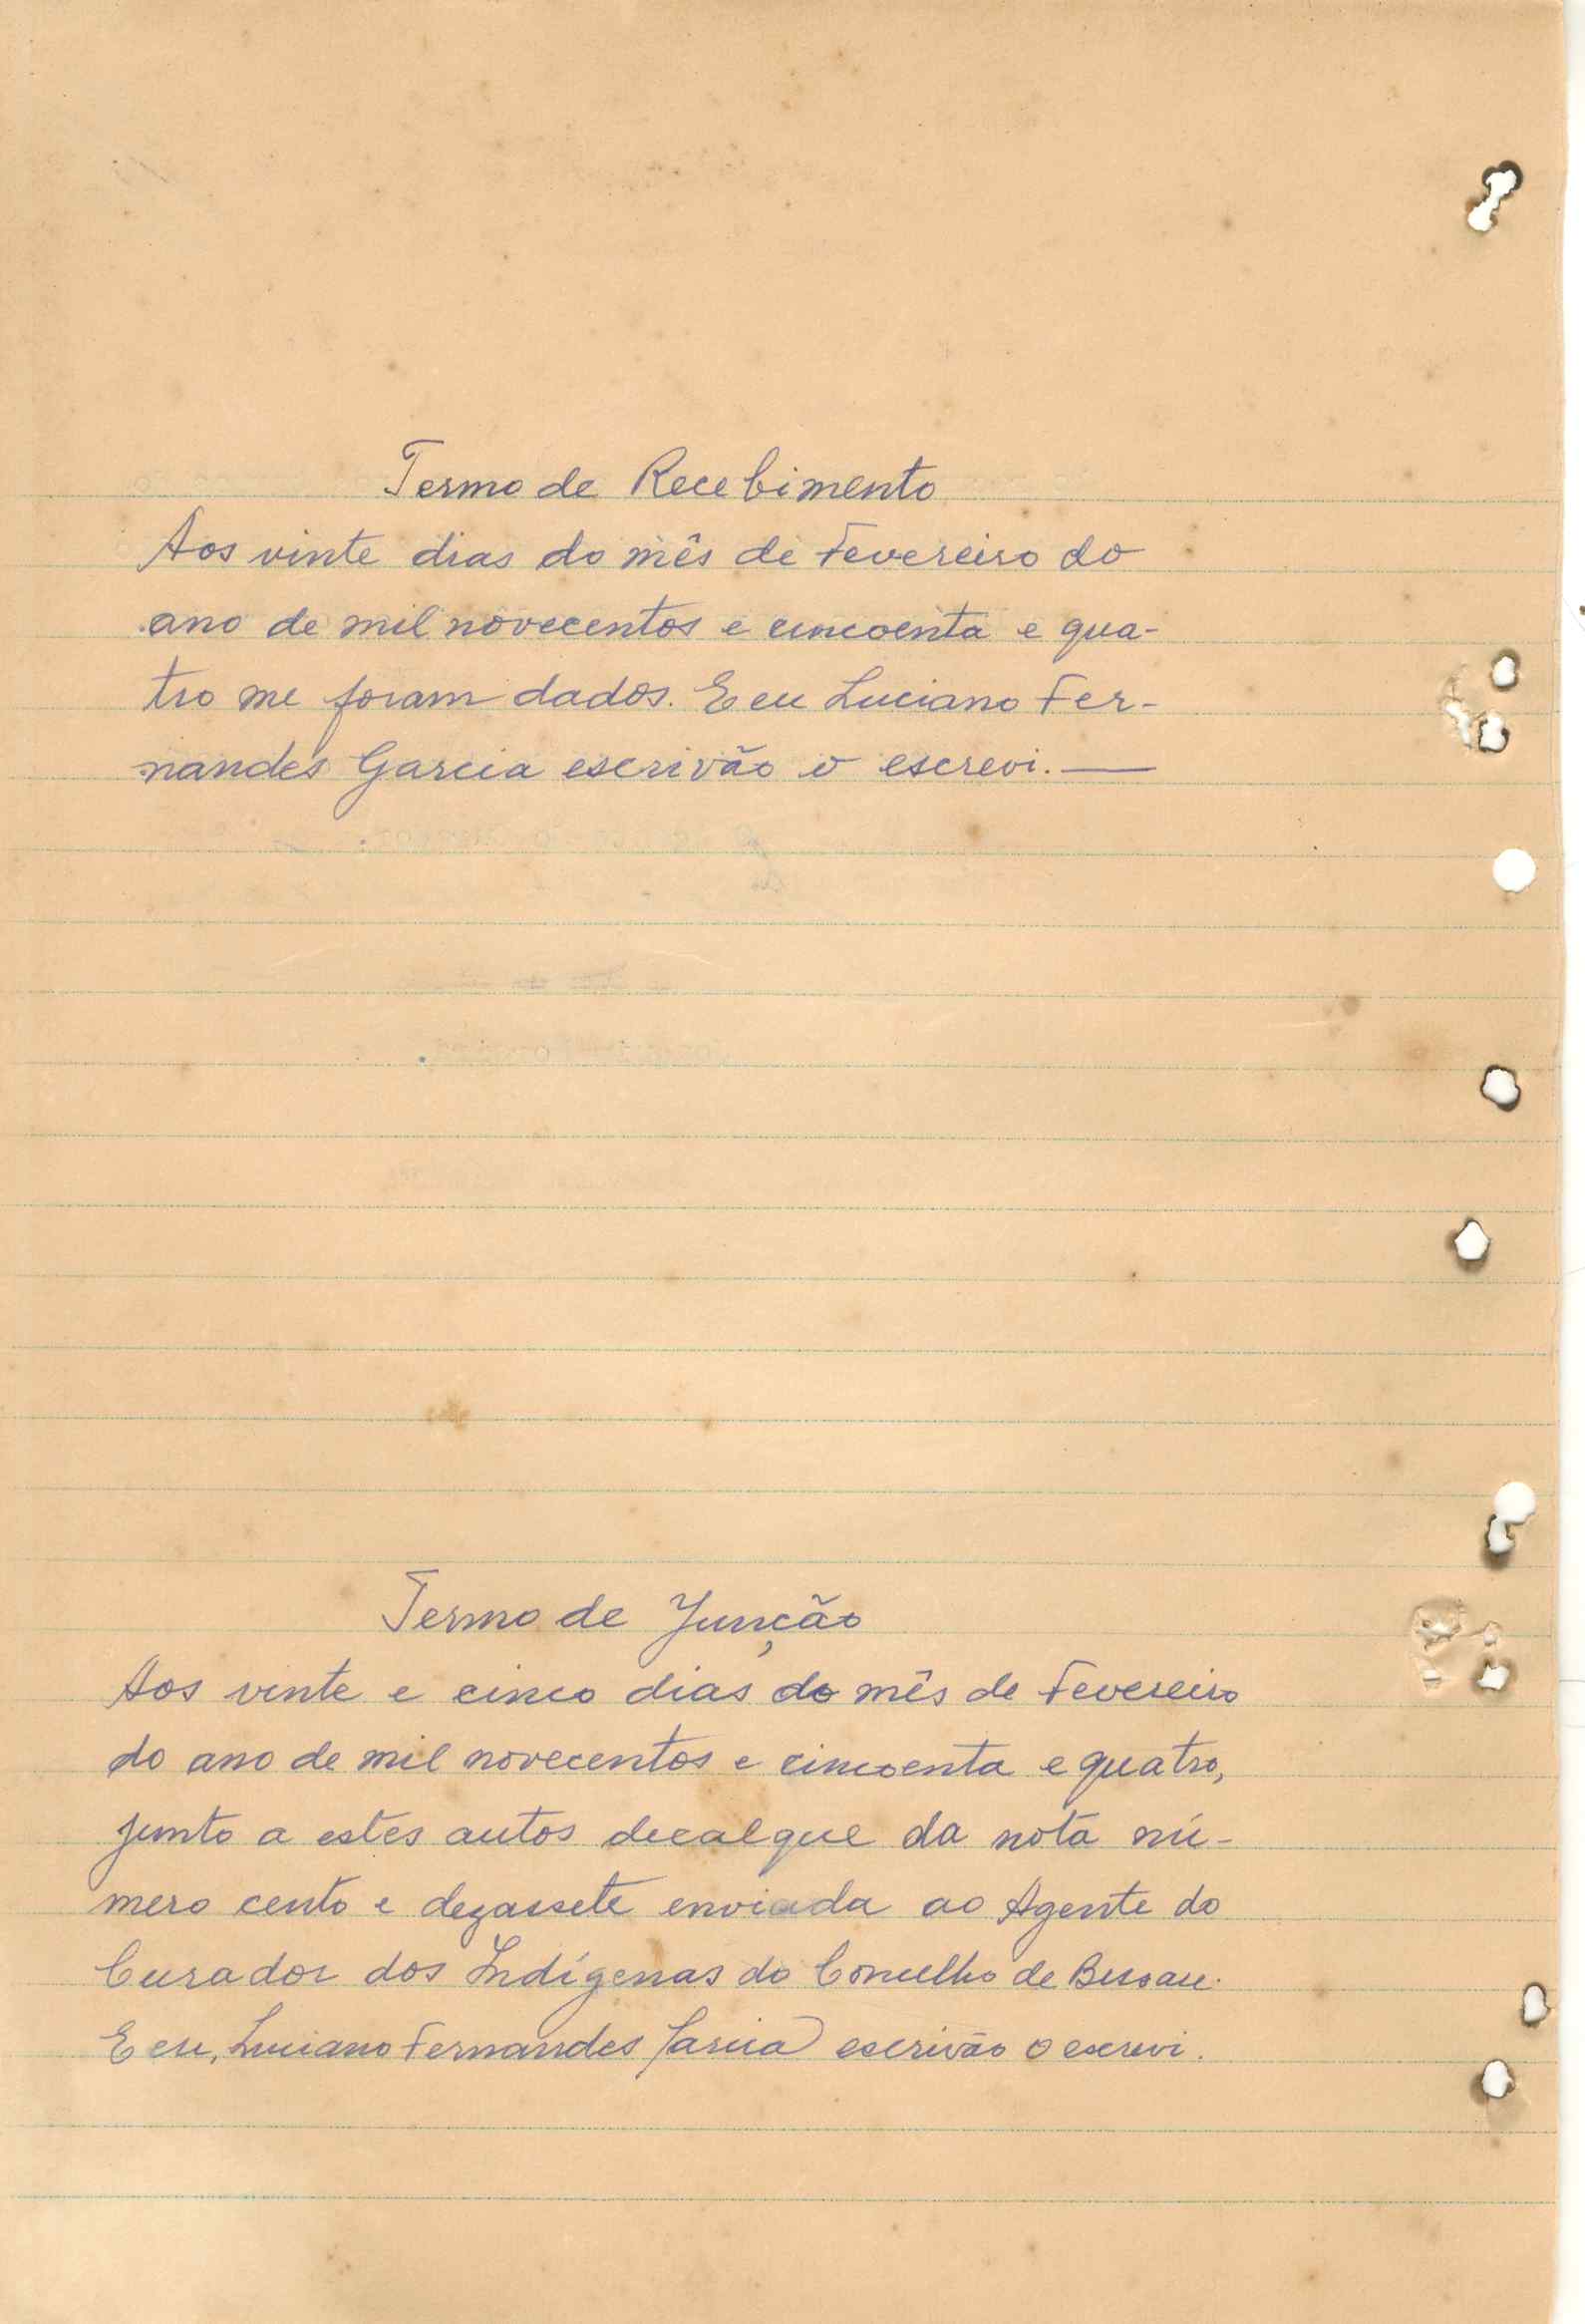 Termo de Recebimento
Aos vinte dias do mês de Fevereiro do
ano de mil novecentos e cincoenta e qua-
tro me foram dados. E eu Luciano Fer-
nandes Garcia escrivão o escrevi.—
Termo de Junção
Aos vinte e cinco dias do mês de Fevereiro
do ano de mil novecentos e cincoenta e quatro,
junto a estes autos decalque da nota nú-
mero cento e dezassete enviada ao Agente do
Curador dos Indígenas do Concelho de Bissau.
E eu, Luciano Fernandes Garcia escrivão o escrevi.